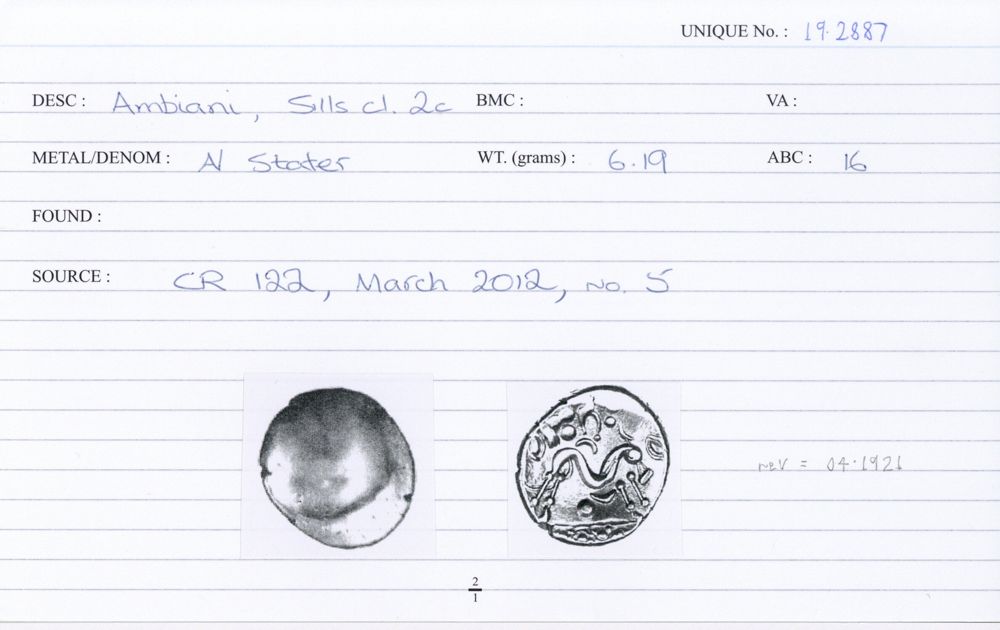 UNIQUE No. : 19.2887
DESC : Ambiani, Sills cl. 2c BMC : VA :
METAL/DENOM : AV Stater WT. (grams) : 6.19 ABC : 16
FOUND :
SOURCE : CR 122, March 2012, no. 5
rev = 04.1921
2
1